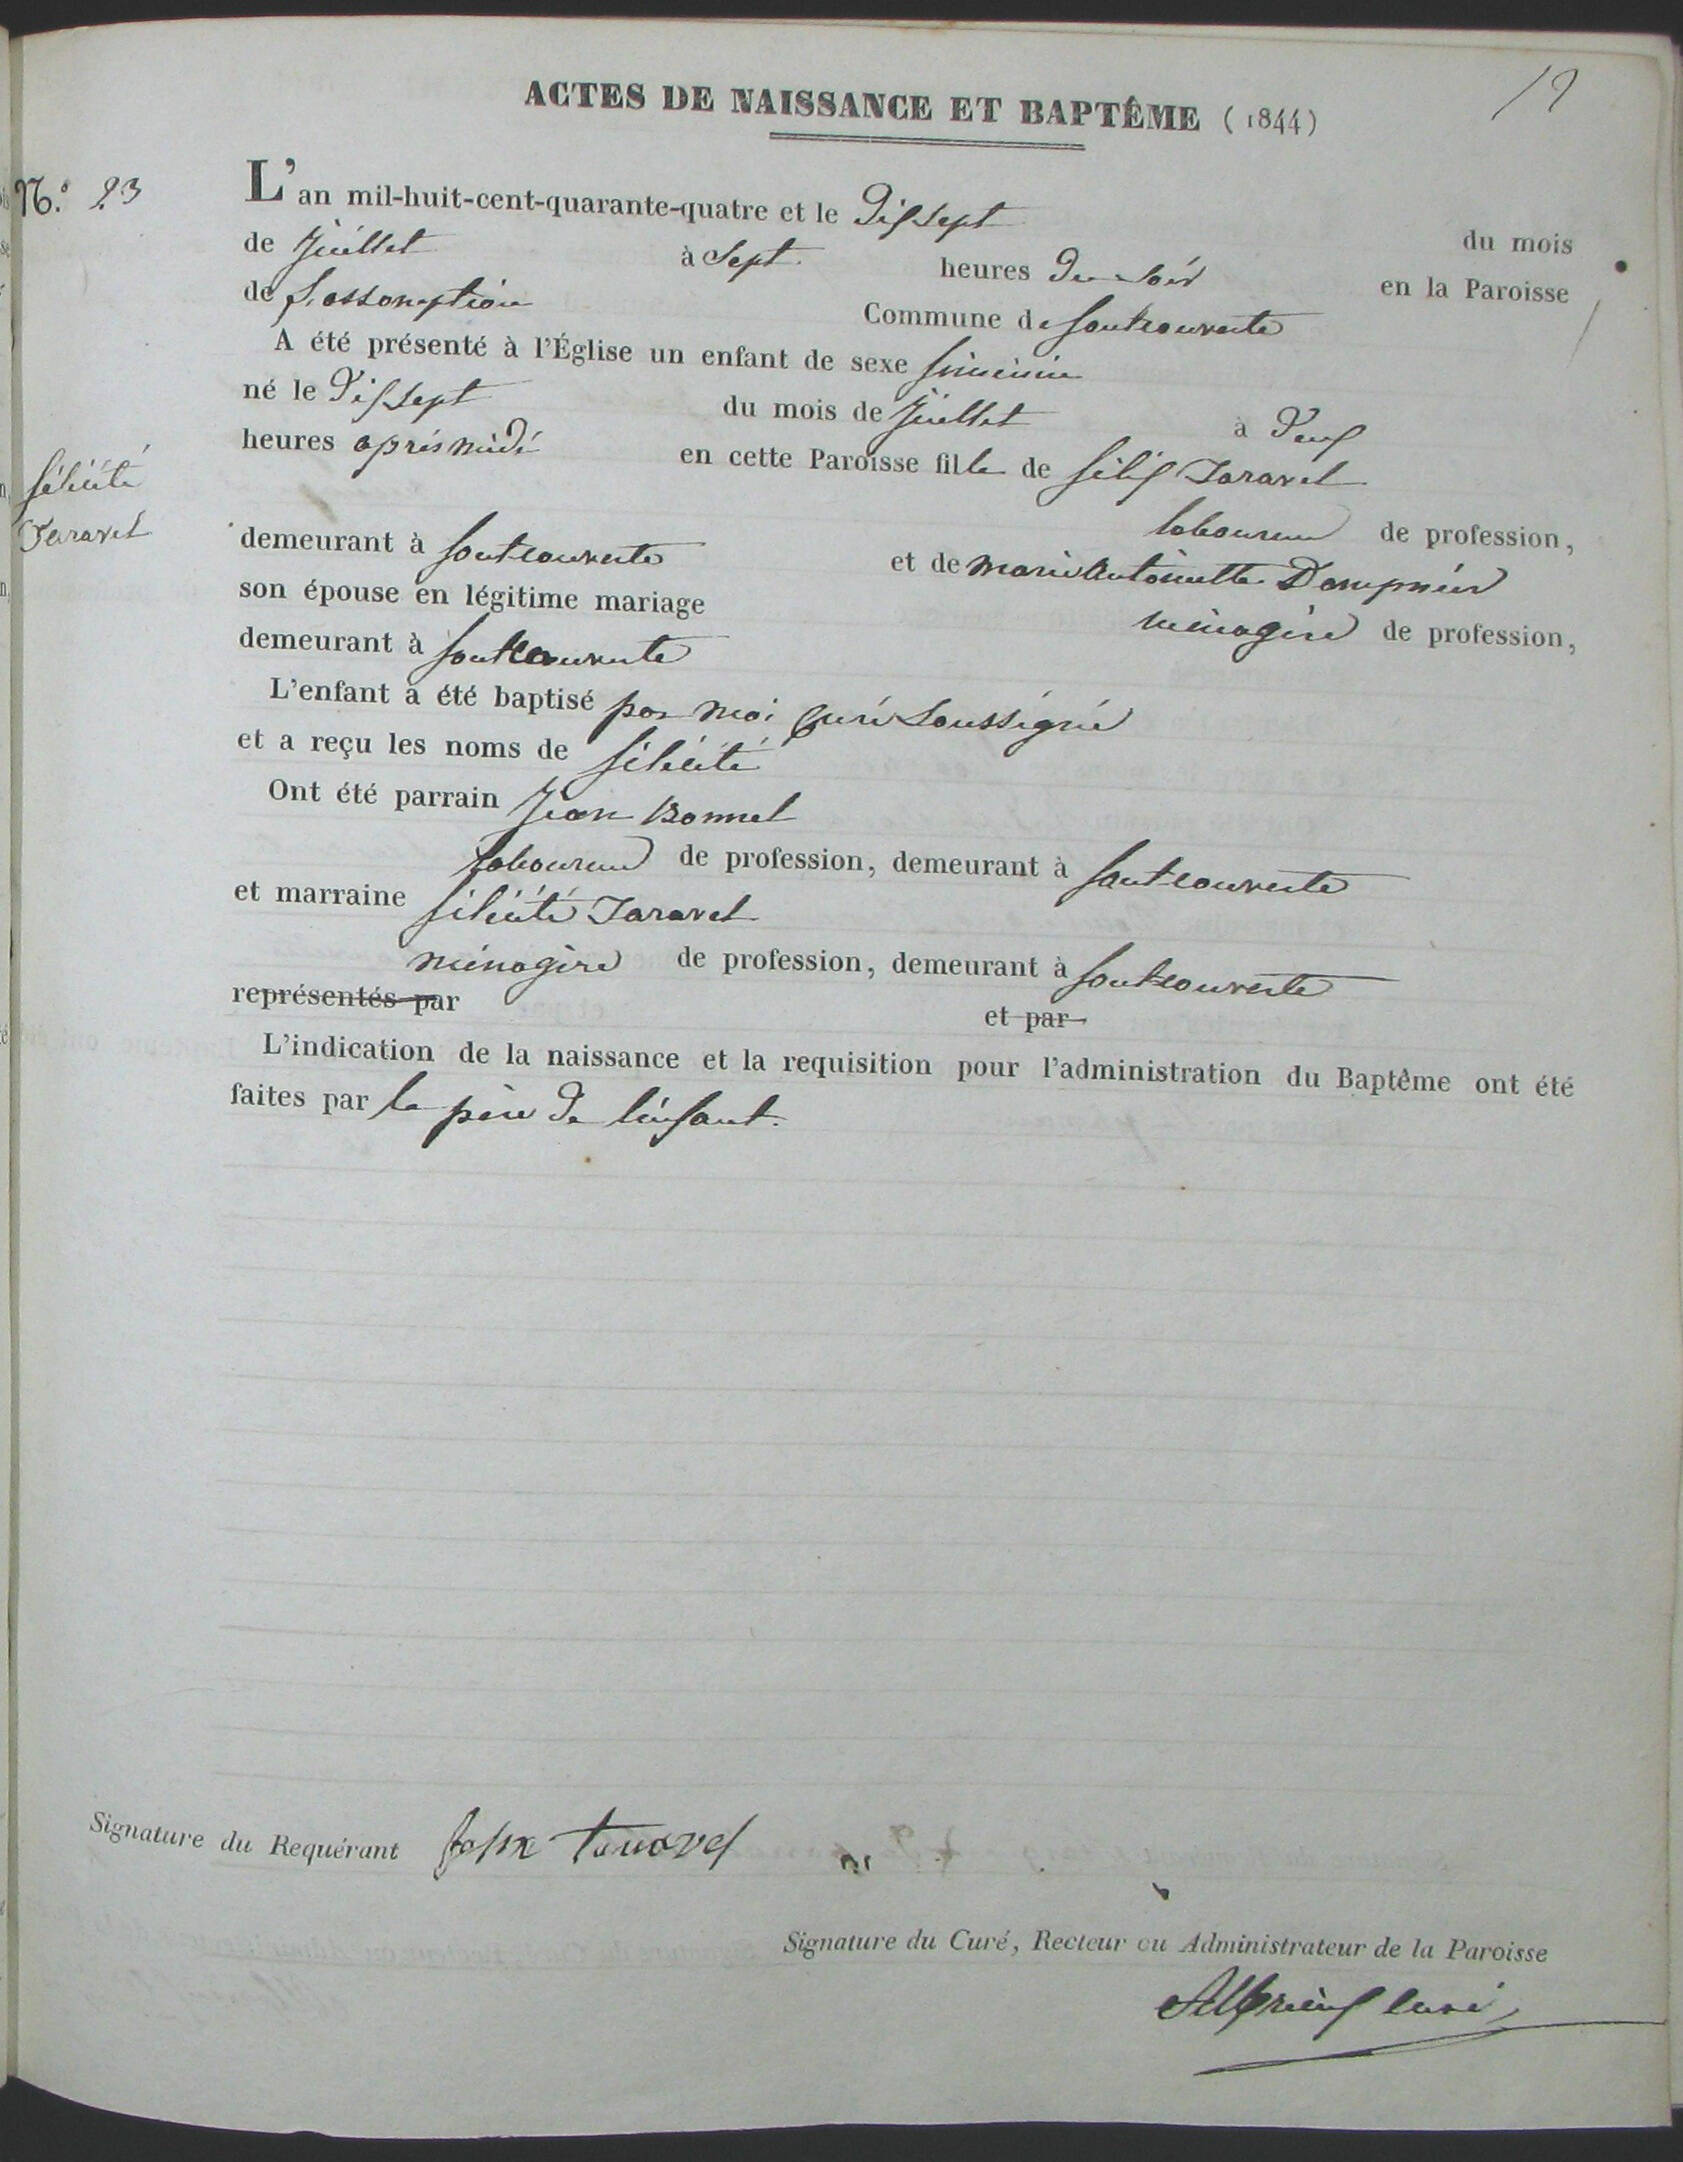 ACTES DE NAISSANCE ET BAPTÊME (1844)
N.º 23
L'an mil-huit-cent-quarante-quatre et le Dixsept du mois
de Juillet à Sept heures Du Soir en la Paroisse
de L'assomption Commune de fontcouverte
A été présenté à l'Église un enfant de sexe féminin
né le Dixsept du mois de Juillet à Deux
heures après midi en cette Paroisse fille de félix Taravel
félicité
Taravel
laboureur de profession,
demeurant à fontcouverte et de marie Antoinette Dompnier
son épouse en légitime mariage ménagère de profession,
demeurant à fontcouverte
L'enfant a été baptisé par moi Curé Soussigné
et a reçu les noms de félicité
Ont été parrain Jean Bonnel
laboureur de profession, demeurant à fontcouverte
et marraine félicité Taravel
ménagère de profession, demeurant à fontcouverte
représentés par et par
L'indication de la naissance et la requisition pour l'administration du Baptême ont été
faites par le père De l'enfant.
Signature du Requérant felix taravel
Signature du Curé, Recteur ou Administrateur de la Paroisse
curé